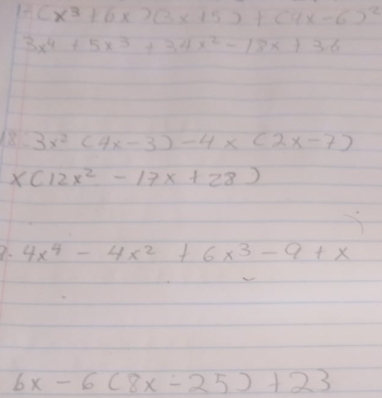 17 (x³ + 6x)(3x + 5) + (4x - 6)²
3x⁴ + 5x³ + 34x² - 18x + 36
18. 3x² (4x - 3) - 4x (2x - 7)
x(12x² - 17x + 28)
9. 4x⁴ - 4x² + 6x³ - 9 + x
6x - 6 (8x - 25) + 23